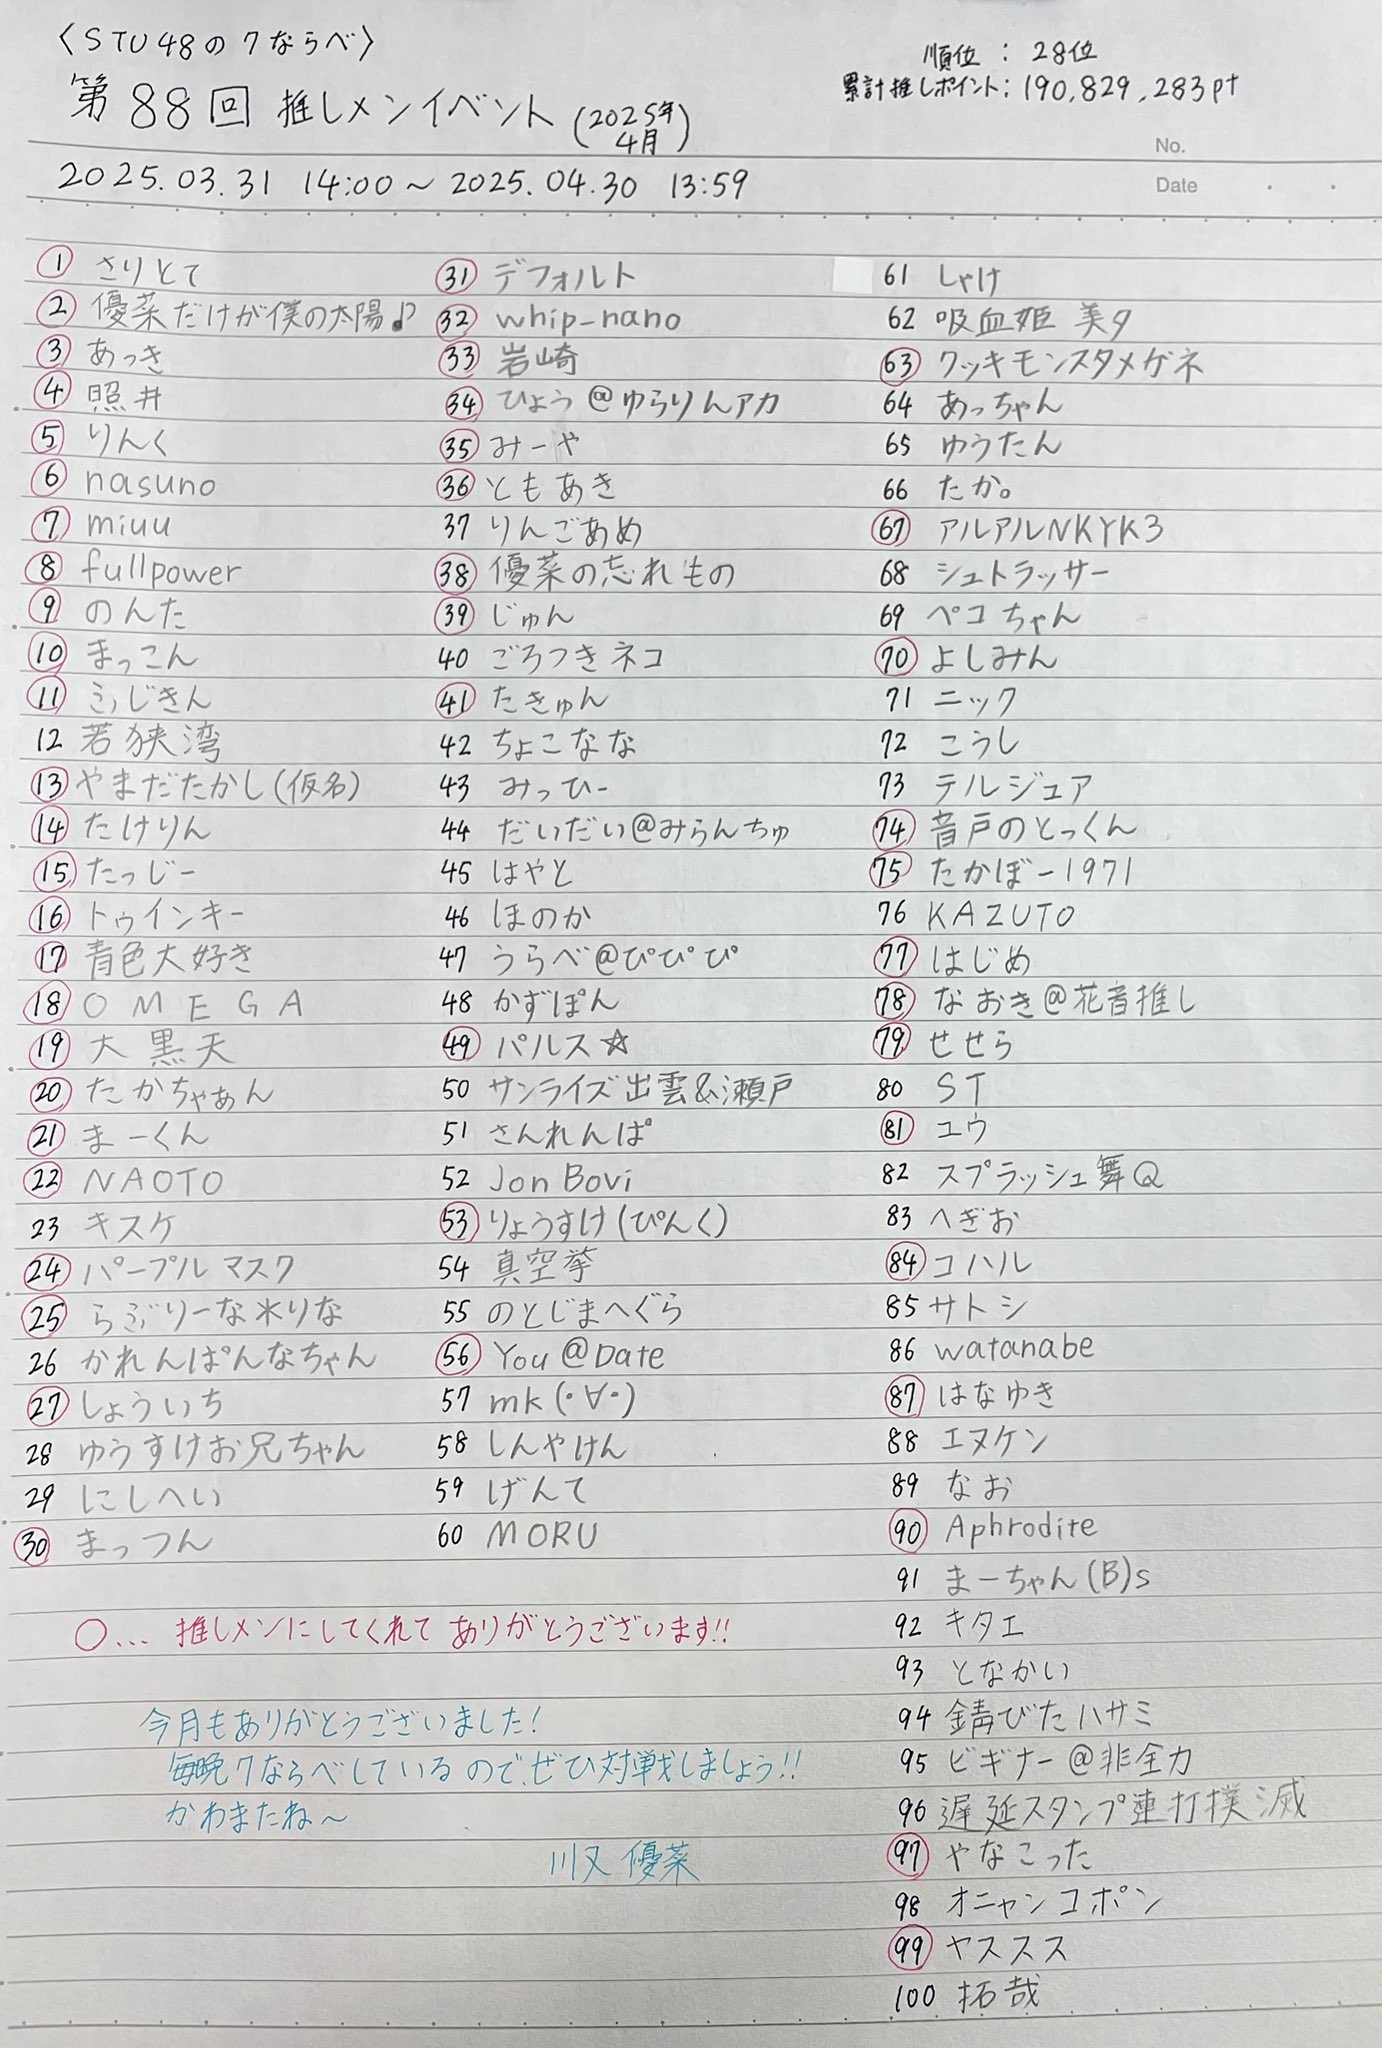 〈STU48の7ならべ〉
順位：28位
累計推しポイント：190,829,283pt
第88回 推しメンイベント(2025年4月)
No.
2025.03.31 14:00～2025.04.30 13:59
Date
1 さりとて
2 優菜だけが僕の太陽♪
3 あっき
4 照井
5 りんく
6 nasuno
7 miuu
8 fullpower
9 のんた
10 まっこん
11 ふじきん
12 若狭湾
13 やまだたかし(仮名)
14 たけりん
15 たっじー
16 トゥインキー
17 青色大好き
18 OMEGA
19 大黒天
20 たかちゃぁん
21 まーくん
22 NAOTO
23 キスケ
24 パープルマスク
25 らぶりーな米りな
26 かれんぱんなちゃん
27 しょういち
28 ゆうすけお兄ちゃん
29 にしへい
30 まっつん
31 デフォルト
32 whip-nano
33 岩崎
34 ひょう@ゆらりんアカ
35 みーや
36 ともあき
37 りんごあめ
38 優菜の忘れもの
39 じゅん
40 ごろつきネコ
41 たきゅん
42 ちょこなな
43 みっひー
44 だいだい@みらんちゅ
45 はやと
46 ほのか
47 うらべ@ぴぴぴ
48 かずぽん
49 パルス☆
50 サンライズ出雲&瀬戸
51 さんれんぱ
52 Jon Bovi
53 りょうすけ(ぴんく)
54 真空拳
55 のとじまへぐら
56 You@Date
57 mk(・∀・)
58 しんやけん
59 げんて
60 MORU
61 しゃけ
62 吸血姫 美夕
63 クッキモンスタメゲネ
64 あっちゃん
65 ゆうたん
66 たか。
67 アルアルNKYK3
68 シュトラッサー
69 ペコちゃん
70 よしみん
71 ニック
72 こうし
73 テルジュア
74 音戸のとっくん
75 たかぼー1971
76 KAZUTO
77 はじめ
78 なおき@花音推し
79 せせら
80 ST
81 ユウ
82 スプラッシュ舞Q
83 へぎお
84 コハル
85 サトシ
86 watanabe
87 はなゆき
88 エヌケン
89 なお
90 Aphrodite
91 まーちゃん(B)s
92 キタエ
93 となかい
94 錆びたハサミ
95 ビギナー@非全力
96 遅延スタンプ連打撲滅
97 やなこった
98 オニャンコポン
99 ヤススス
100 拓哉
○…推しメンにしてくれてありがとうございます!!
今月もありがとうございました!
毎晩7ならべしているので、ぜひ対戦しましょう!!
かわまたね～
川又 優菜